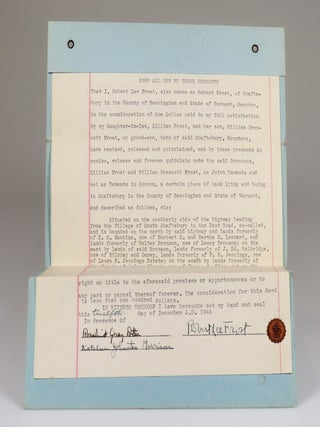 KNOW ALL MEN BY THESE PRESENTS
That I, Robert Lee Frost, also known as Robert Frost, of Shafts-
bury in the County of Bennington and State of Vermont, Grantor,
in the consideration of One Dollar paid to my full satisfaction
by my daughter-in-law, Lillian Frost, and her son, William Pres-
cott Frost, my grand-son, both of said Shaftsbury, Grantees,
have remised, released and quitclaimed, and by these presents do
remise, release and forever quitclaim unto the said Grantees,
Lillian Frost and William Prescott Frost, as Joint Tenants and
not as Tenants in Common, a certain piece of land lying and being
in Shaftsbury in the County of Bennington and State of Vermont,
and described as follows, viz:
Situated on the southerly side of the highway leading
from the Village of South Shaftsbury to the East Road, so-called,
and is bounded on the north by said highway and lands formerly
of N. M. Hawkins, now of Herbert A. and Bertha L. Leonard, and
lands formerly of Walter Bronson, now of Leroy Bronson; on the
east by lands of said Bronson, lands formerly of J. Ed. Holbridge,
now of Hilchey and Carey, lands formerly of F. B. Jennings, now
of Laura B. Jennings Estate; on the south by lands formerly of
right or title to the aforesaid premises or appurtenances or to
any part or parcel thereof forever. The consideration for this deed
is less than one hundred dollars.
IN WITNESS WHEREOF I have hereunto set my hand and seal
this twelfth day of December A.D. 1946
In Presence Of
Robert Lee Frost
Kathleen Johnston Morrison